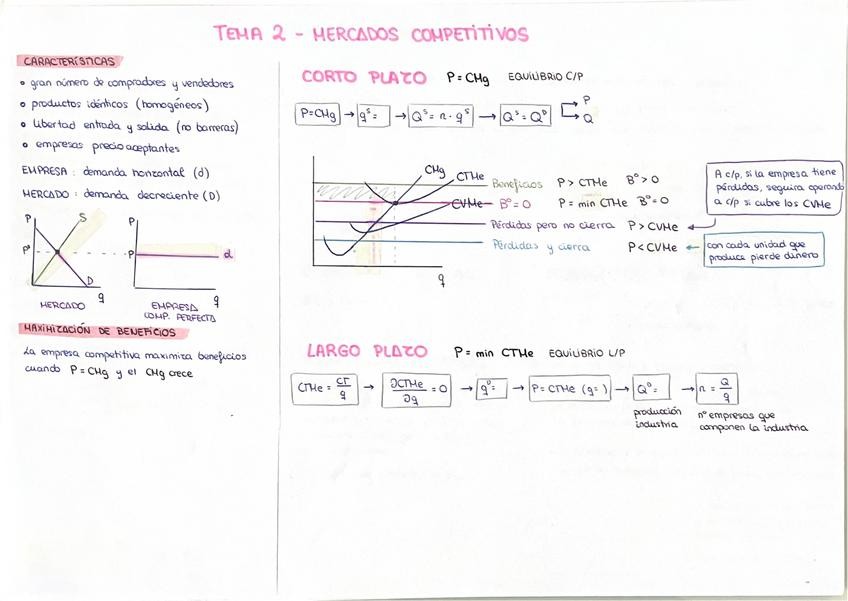 TEMA 2 - MERCADOS COMPETITIVOS
CARACTERÍSTICAS
• gran número de compradores y vendedores
• productos idénticos (homogéneos)
• libertad entrada y salida (no barreras)
• empresas precio aceptantes
EMPRESA : demanda horizontal (d)
MERCADO : demanda decreciente (D)
P
S
P*
D
q
MERCADO
P
P
d
q
EMPRESA
COMP. PERFECTA
MAXIMIZACIÓN DE BENEFICIOS
La empresa competitiva maximiza beneficios
cuando P=CMg y el CMg crece
CORTO PLAZO P=CMg EQUILIBRIO C/P
P=CMg → qˢ= → Qˢ= n · qˢ → Qˢ= Qᴰ → P
→ Q
CMg
CTMe
CVMe
q
Beneficios P > CTMe Bº > 0
Bº = 0 P = min CTMe Bº=0
Pérdidas pero no cierra P > CVMe
Pérdidas y cierra P < CVMe
A c/p, si la empresa tiene
pérdidas, seguira operando
a c/p si cubre los CVMe
con cada unidad que
produce pierde dinero
LARGO PLAZO P= min CTMe EQUILIBRIO L/P
CTMe = CT/q → ∂CTMe/∂q = 0 → qº= → P= CTMe (q= ) → Qº= → n = Q/q
producción
industria
nº empresas que
componen la industria